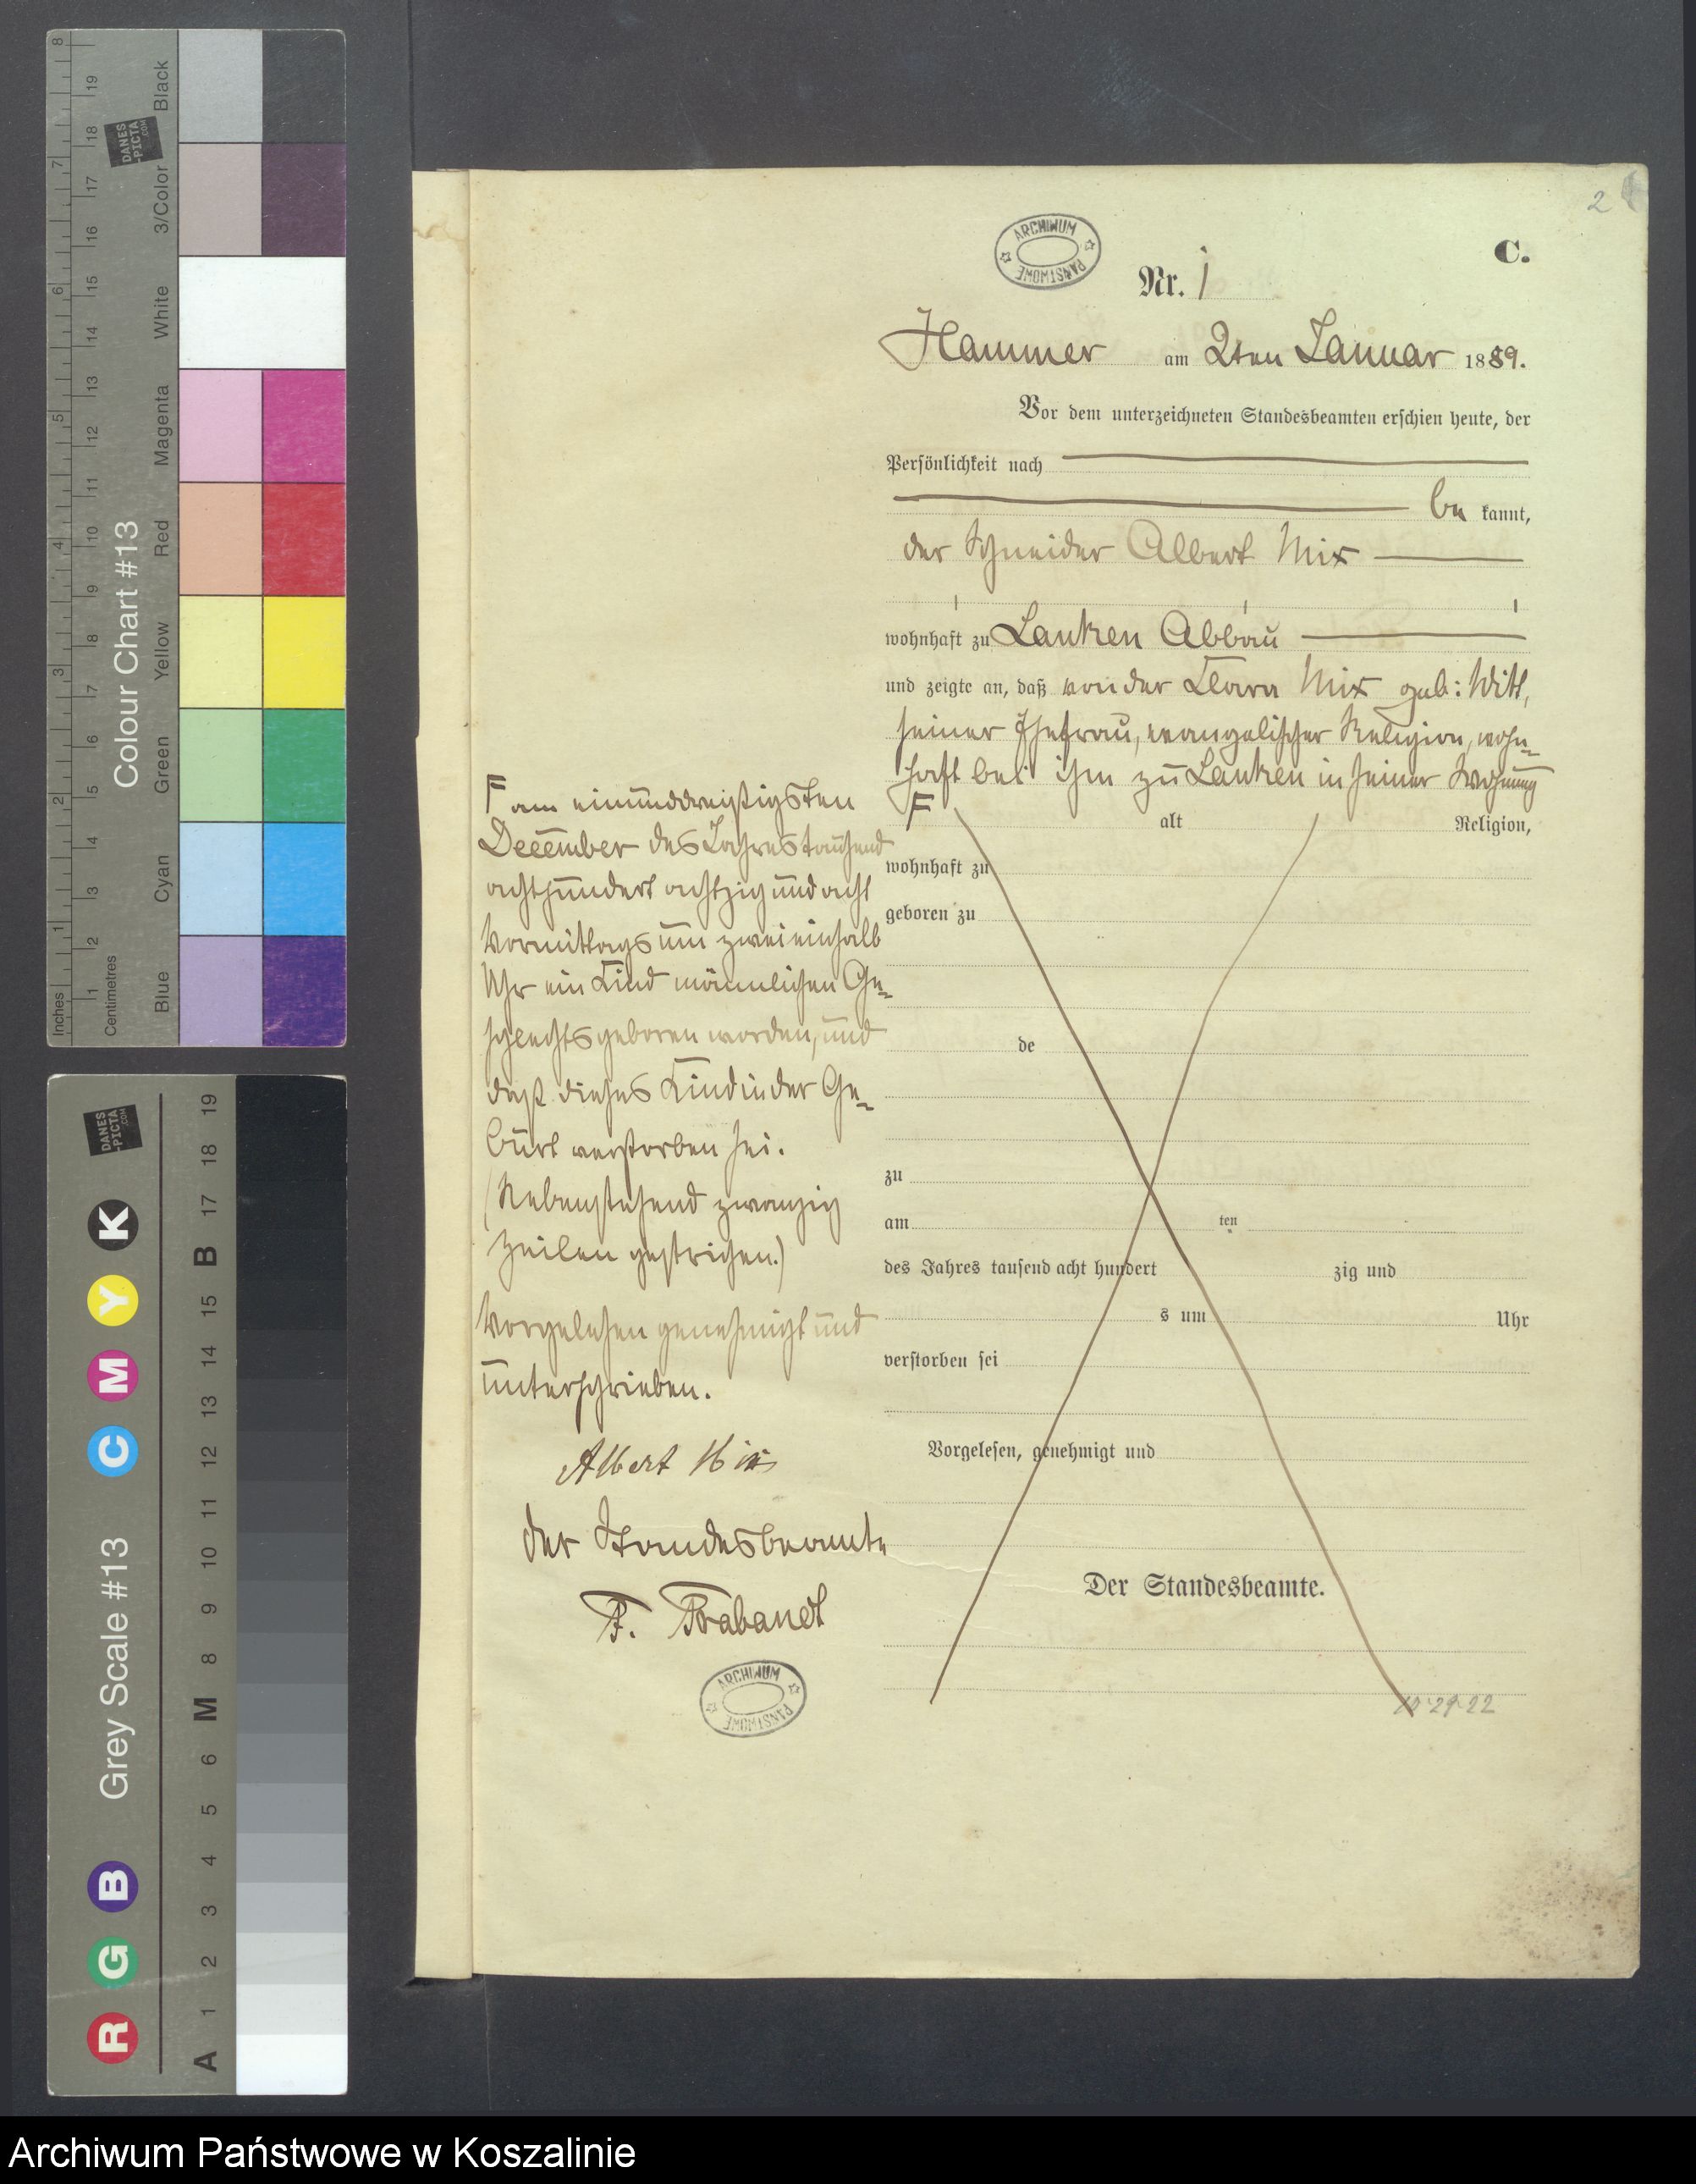 2
C.
ARCHIWUM PAŃSTWOWE
Nr. 1
Hammer am 2ten Januar 1889.
Vor dem unterzeichneten Standesbeamten erschien heute, der
Persönlichkeit nach
be kannt,
der Schneider Albert Mix
wohnhaft zu Lanken Abbau
und zeigte an, daß von der Clara Mix geb: Witt,
seiner Ehefrau, evangelischer Religion, wohn-
haft bei ihm zu Lanken in seiner Wohnung
F
alt Religion,
wohnhaft zu
geboren zu
de
zu
am ten
des Jahres tausend acht hundert zig und
s um Uhr
verstorben sei
Vorgelesen, genehmigt und
Der Standesbeamte.
F am einunddreißigsten
December des Jahres tausend
achthundert achtzig und acht
Vormittags um zweieinhalb
Uhr ein Kind männlichen Ge-
schlechts geboren worden, und
daß dieses Kind in der Ge-
burt verstorben sei.
(Nebenstehend zwanzig
Zeilen gestrichen.)
Vorgelesen genehmigt und
unterschrieben.
Albert Mix
Der Standesbeamte
F. Brabandt
ARCHIWUM PAŃSTWOWE
Inches 1 2 3 4 5 6 7 8
Centimetres 1 2 3 4 5 6 7 8 9 10 11 12 13 14 15 16 17 18 19
Colour Chart #13
Blue Cyan Green Yellow Red Magenta White 3/Color Black
DANES
-PICTA
.COM
Grey Scale #13
R G B C M Y K
A 1 2 3 4 5 6 M 8 9 10 11 12 13 14 15 B 17 18 19
DANES
-PICTA
.COM
Archiwum Państwowe w Koszalinie